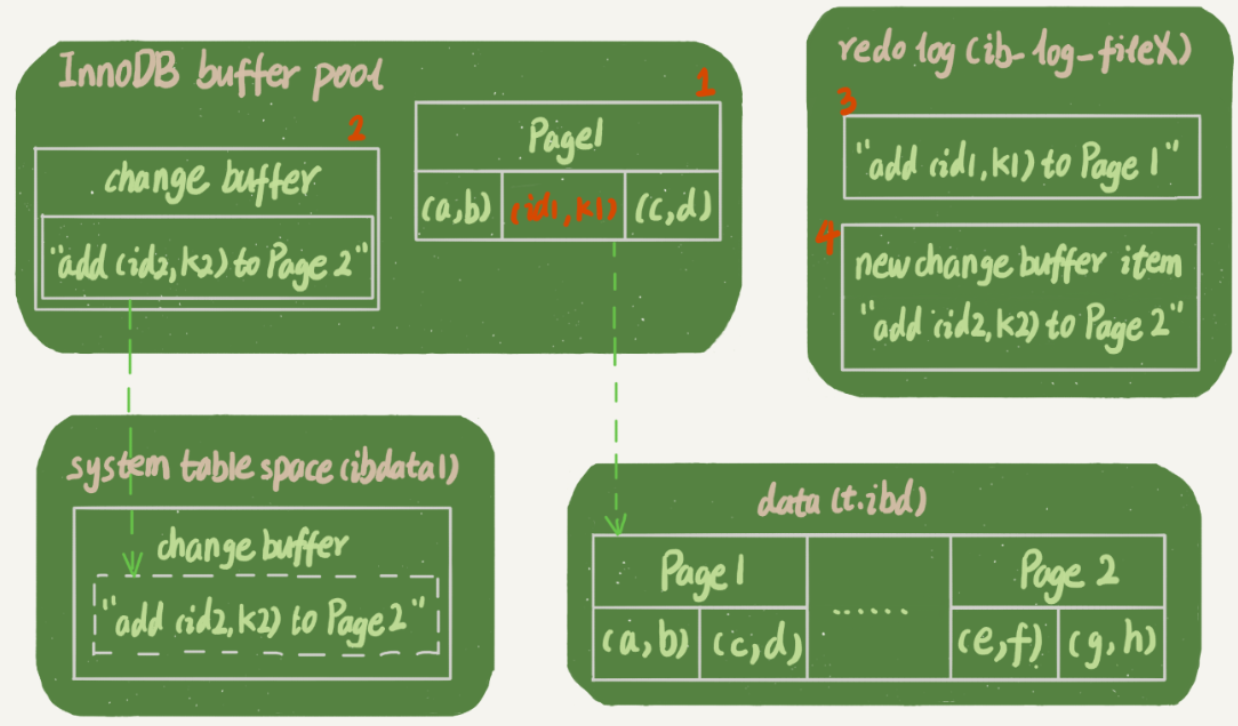 InnoDB buffer pool
1
Page1
(a,b) (id1,k1) (c,d)
2
change buffer
"add (id2,k2) to Page 2"
redo log (ib_log_fileX)
3
"add (id1,k1) to Page 1"
4
new change buffer item
"add (id2,k2) to Page 2"
system table space (ibdata1)
change buffer
"add (id2,k2) to Page 2"
data (t.ibd)
Page1 ...... Page 2
(a,b) (c,d) (e,f) (g,h)